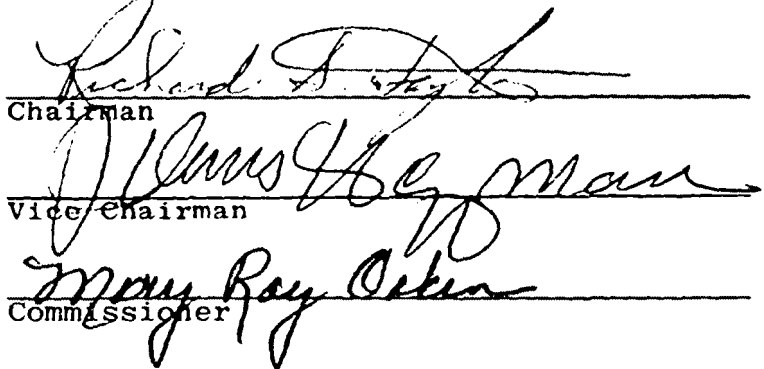 Richard D. Taylor
Chairman
J. Dennis
Vice Chairman
Mary Ray Oaken
Commissioner